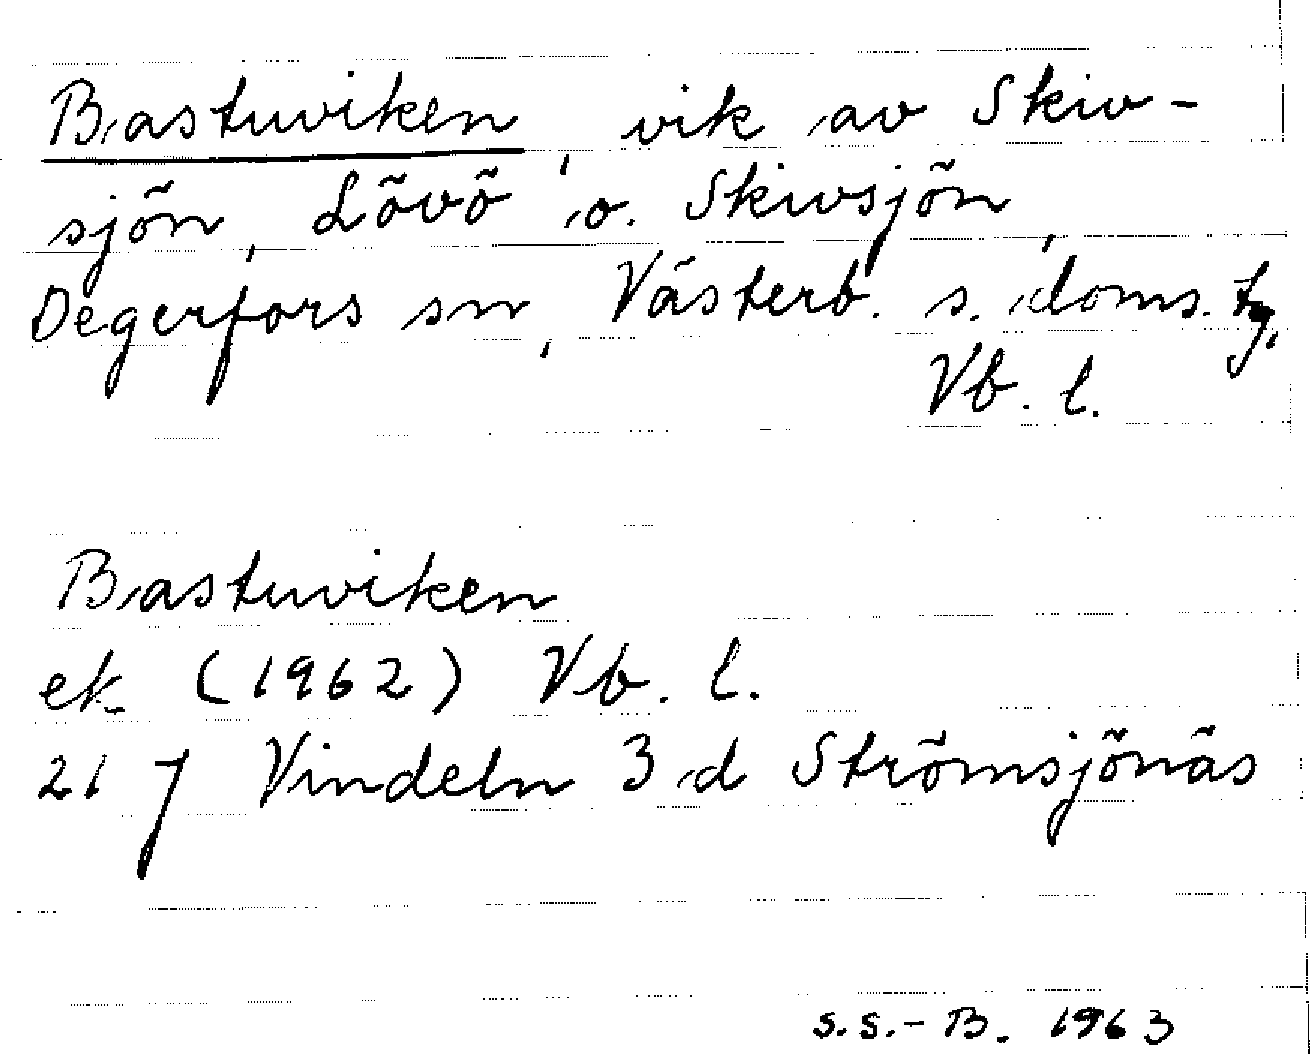 Bastuviken, vik av Skiv-
sjön, Lövö o. Skivsjön,
Degerfors sn, Västerb. s. doms. tg,
Vb. l.
Bastuviken
ek. (1962) Vb. l.
21 J Vindeln 3 d Strömsjönäs
S.S.-B. 1963